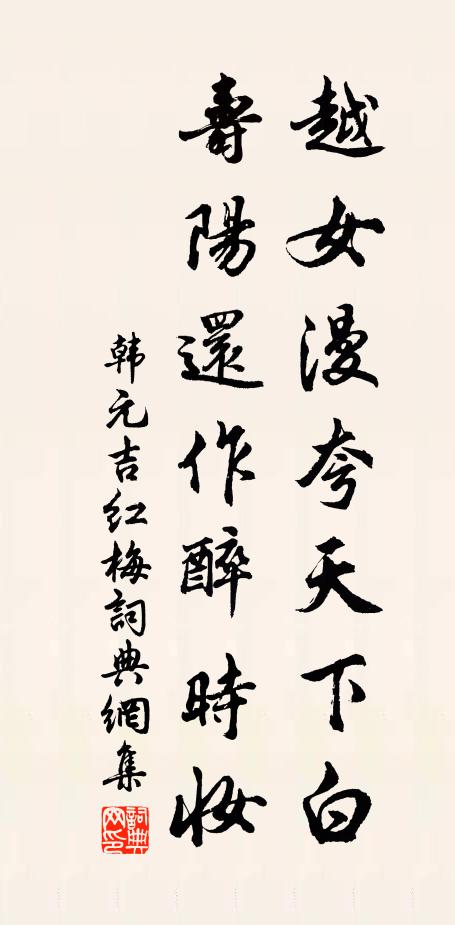 越女漫夸天下白
壽陽還作醉時妝
韩元吉红梅詞典網集
詞典网印